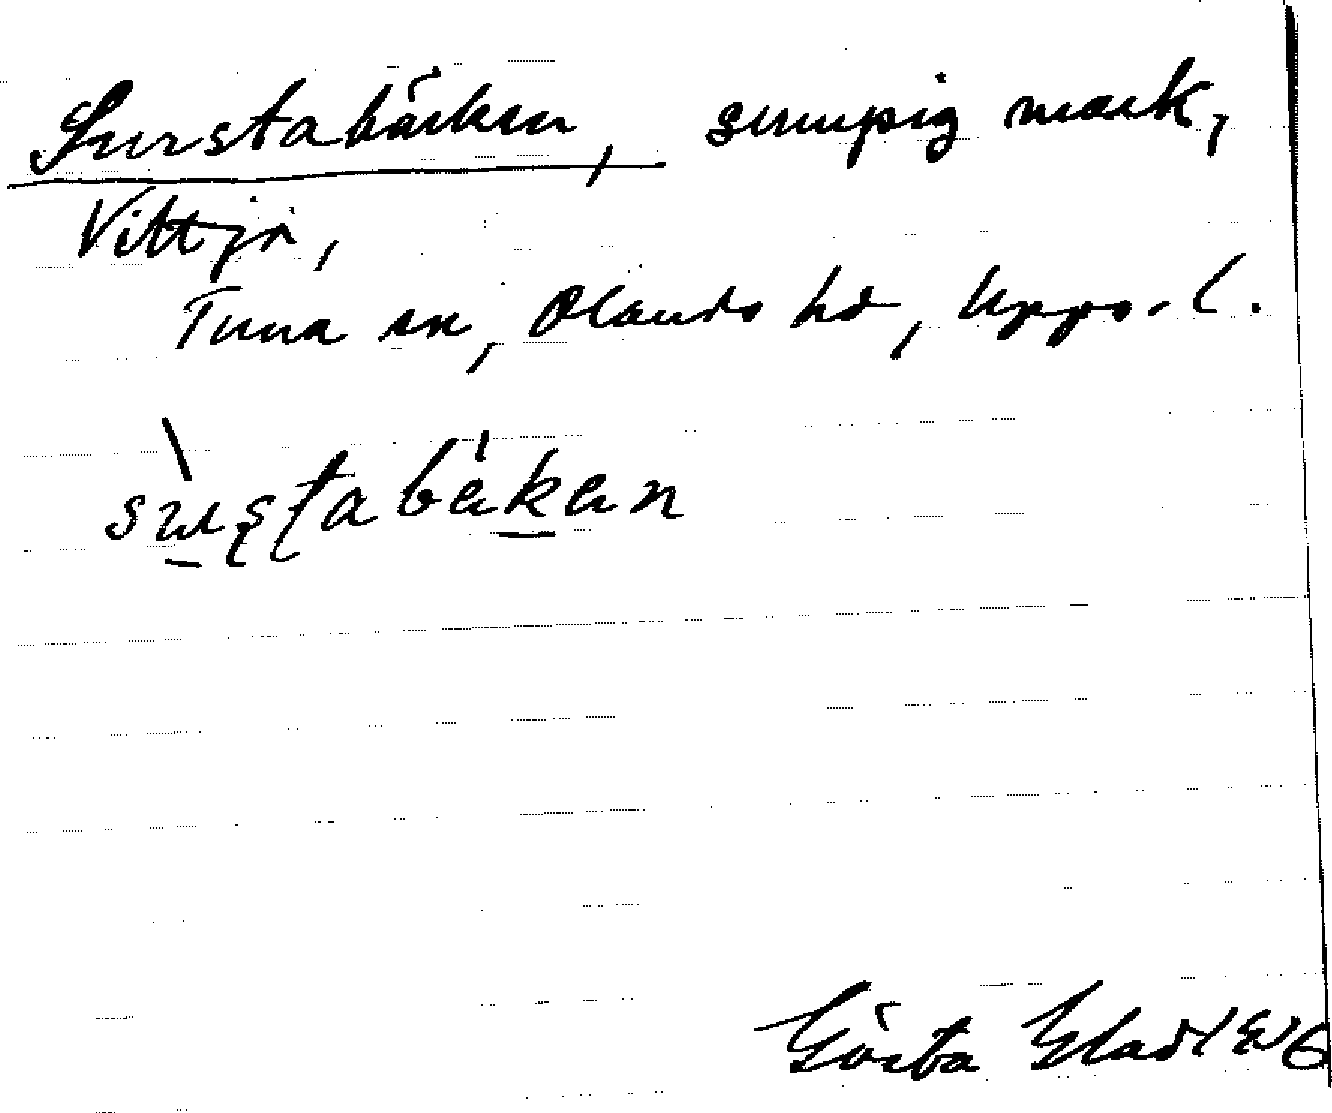 Surstabäcken, sumpig mark,
Vittja,
Tuna sn, Olands hd, Upps. l.
sùstabäkan
Gösta